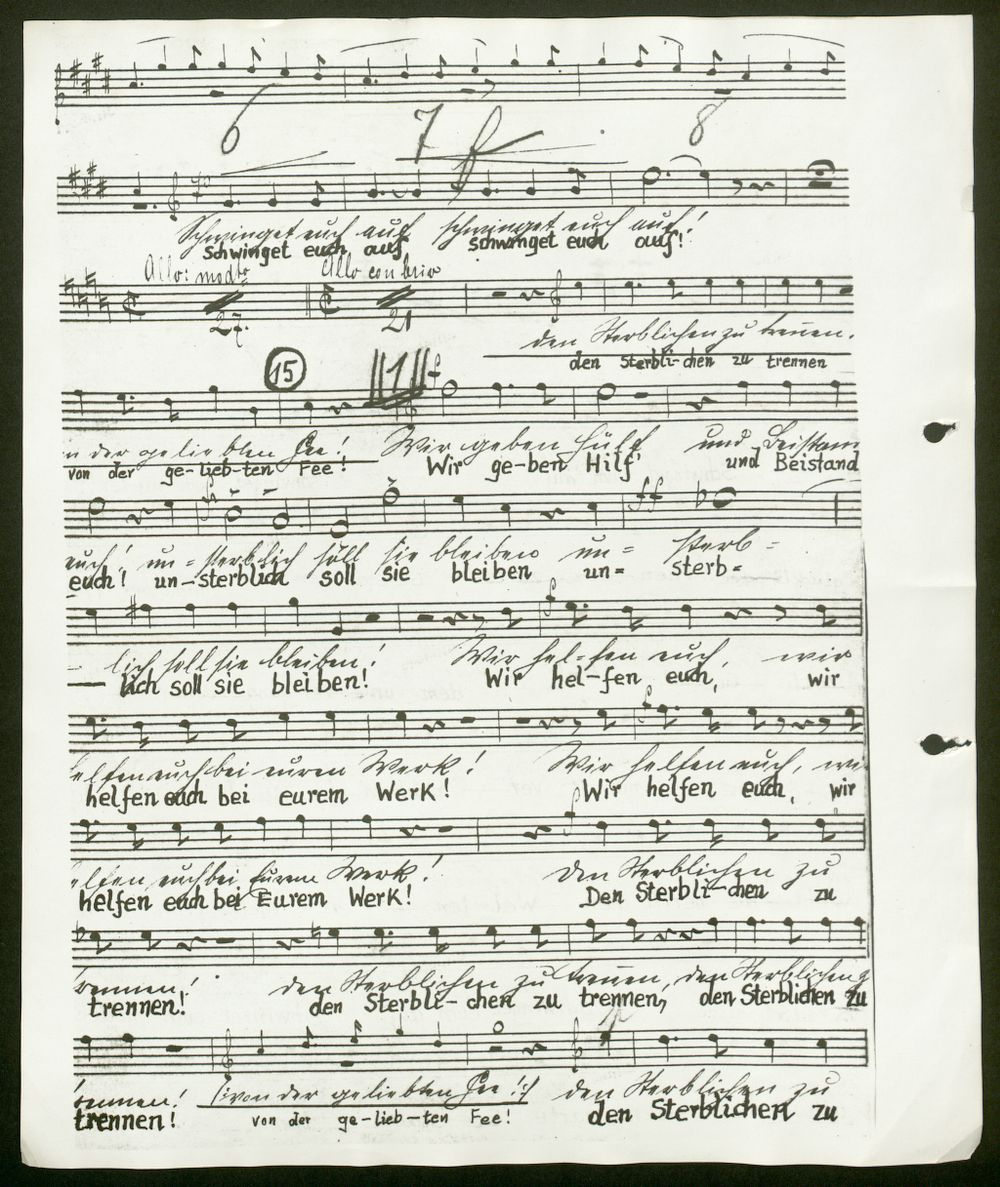 6 7 8
Schwinget euch auf schwinget euch auf!
Schwinget euch auf schwinget euch auf!
Allo: modto Allo con brio
27. 21
den Sterblichen zu trennen.
den Sterbli-chen zu trennen
15 1 f
von der geliebten Fee! Wir geben Hülf und Beistand
von der ge-lieb-ten Fee! Wir ge-ben Hilf' und Beistand
ff
euch! un=sterblich soll sie bleiben un= sterb=
euch! un-sterblich soll sie bleiben un= sterb=
lich soll sie bleiben! Wir hel=fen euch, wir
lich soll sie bleiben! Wir hel-fen euch, wir
helfen euch bei eurem Werk! Wir helfen euch, wir
helfen euch bei eurem Werk! Wir helfen euch, wir
helfen euch bei Eurem Werk! Den Sterblichen zu
helfen euch bei Eurem Werk! Den Sterbli-chen zu
trennen! den Sterblichen zu trennen, den Sterblichen zu
trennen! den Sterbli-chen zu trennen, den Sterblichen zu
trennen! (von der geliebten Fee!) den Sterblichen zu
trennen! von der ge-lieb-ten Fee! den Sterblichen zu